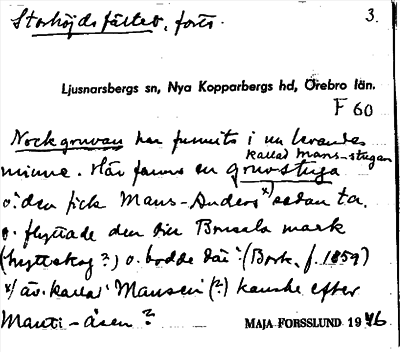 Storhöjdsfältet, forts. 3.
Ljusnarsbergs sn, Nya Kopparbergs hd, Örebro län.
F 60
Nockgruvan har funnits i nu levandes
minne. Här fanns en gruvstuga kallad Mans-stugan
o. den fick Mans-Anders x) sedan ta
o. flyttade den till Brusala mark
(hyttskog?) o. bodde där. (Berk. f. 1859)
x/ äv. kallad "Mansen" (?) kanske efter
Manti-åsen?
MAJA FORSSLUND 1946